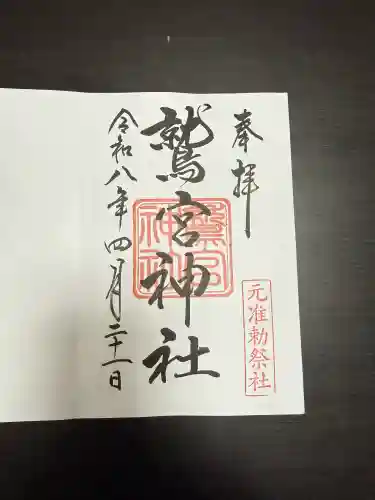 奉拝
元准勅祭社
鷲宮神社
鷲宮神社
令和八年四月二十一日